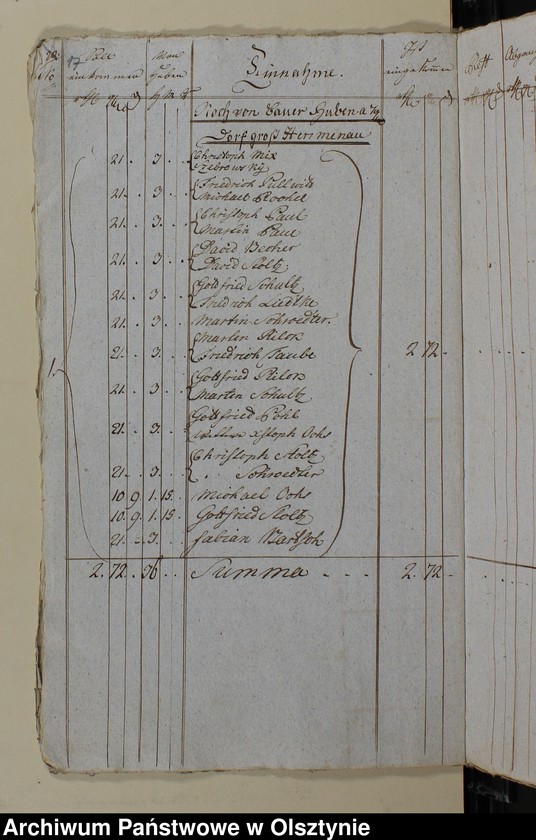 17
No
Soll
einkommen
Von
Huben
Einnahme.
Ist
eingekommen
Rest
Abgang
Noch von Bauer Huben a 7 rg
Dorf groß Hermenau
21. . 3. . . Christoph Mix
21. . 3. . . Friedrich Pullwitt
Michael Rockel
21. . 3. . . Christoph Paul
Martin Paul
21. . 3. . . David Becher
David Stoltz
21. . 3. . . Gottfried Schultz
Friedrich Liedtke
21. . 3. . . Martin Schroedter.
Marten
21. . 3. . . Friedrich Taube
2 72 -
1.
Gottfried
21. . 3. . . Marten Schultz
Gottfried Pohl
21. . 3. . . Xstoph Ochs
Christoph Stoltz
21. . 3. . . Schroedter
10 9 . 1. 15. Michael Ochs
10. 9 . 1. 15. Gottfried Stoltz
21. - 3. . . Fabian Bartsch
2. 72. . 36 . . Summa - - - - 2. 72 -
Archiwum Państwowe w Olsztynie